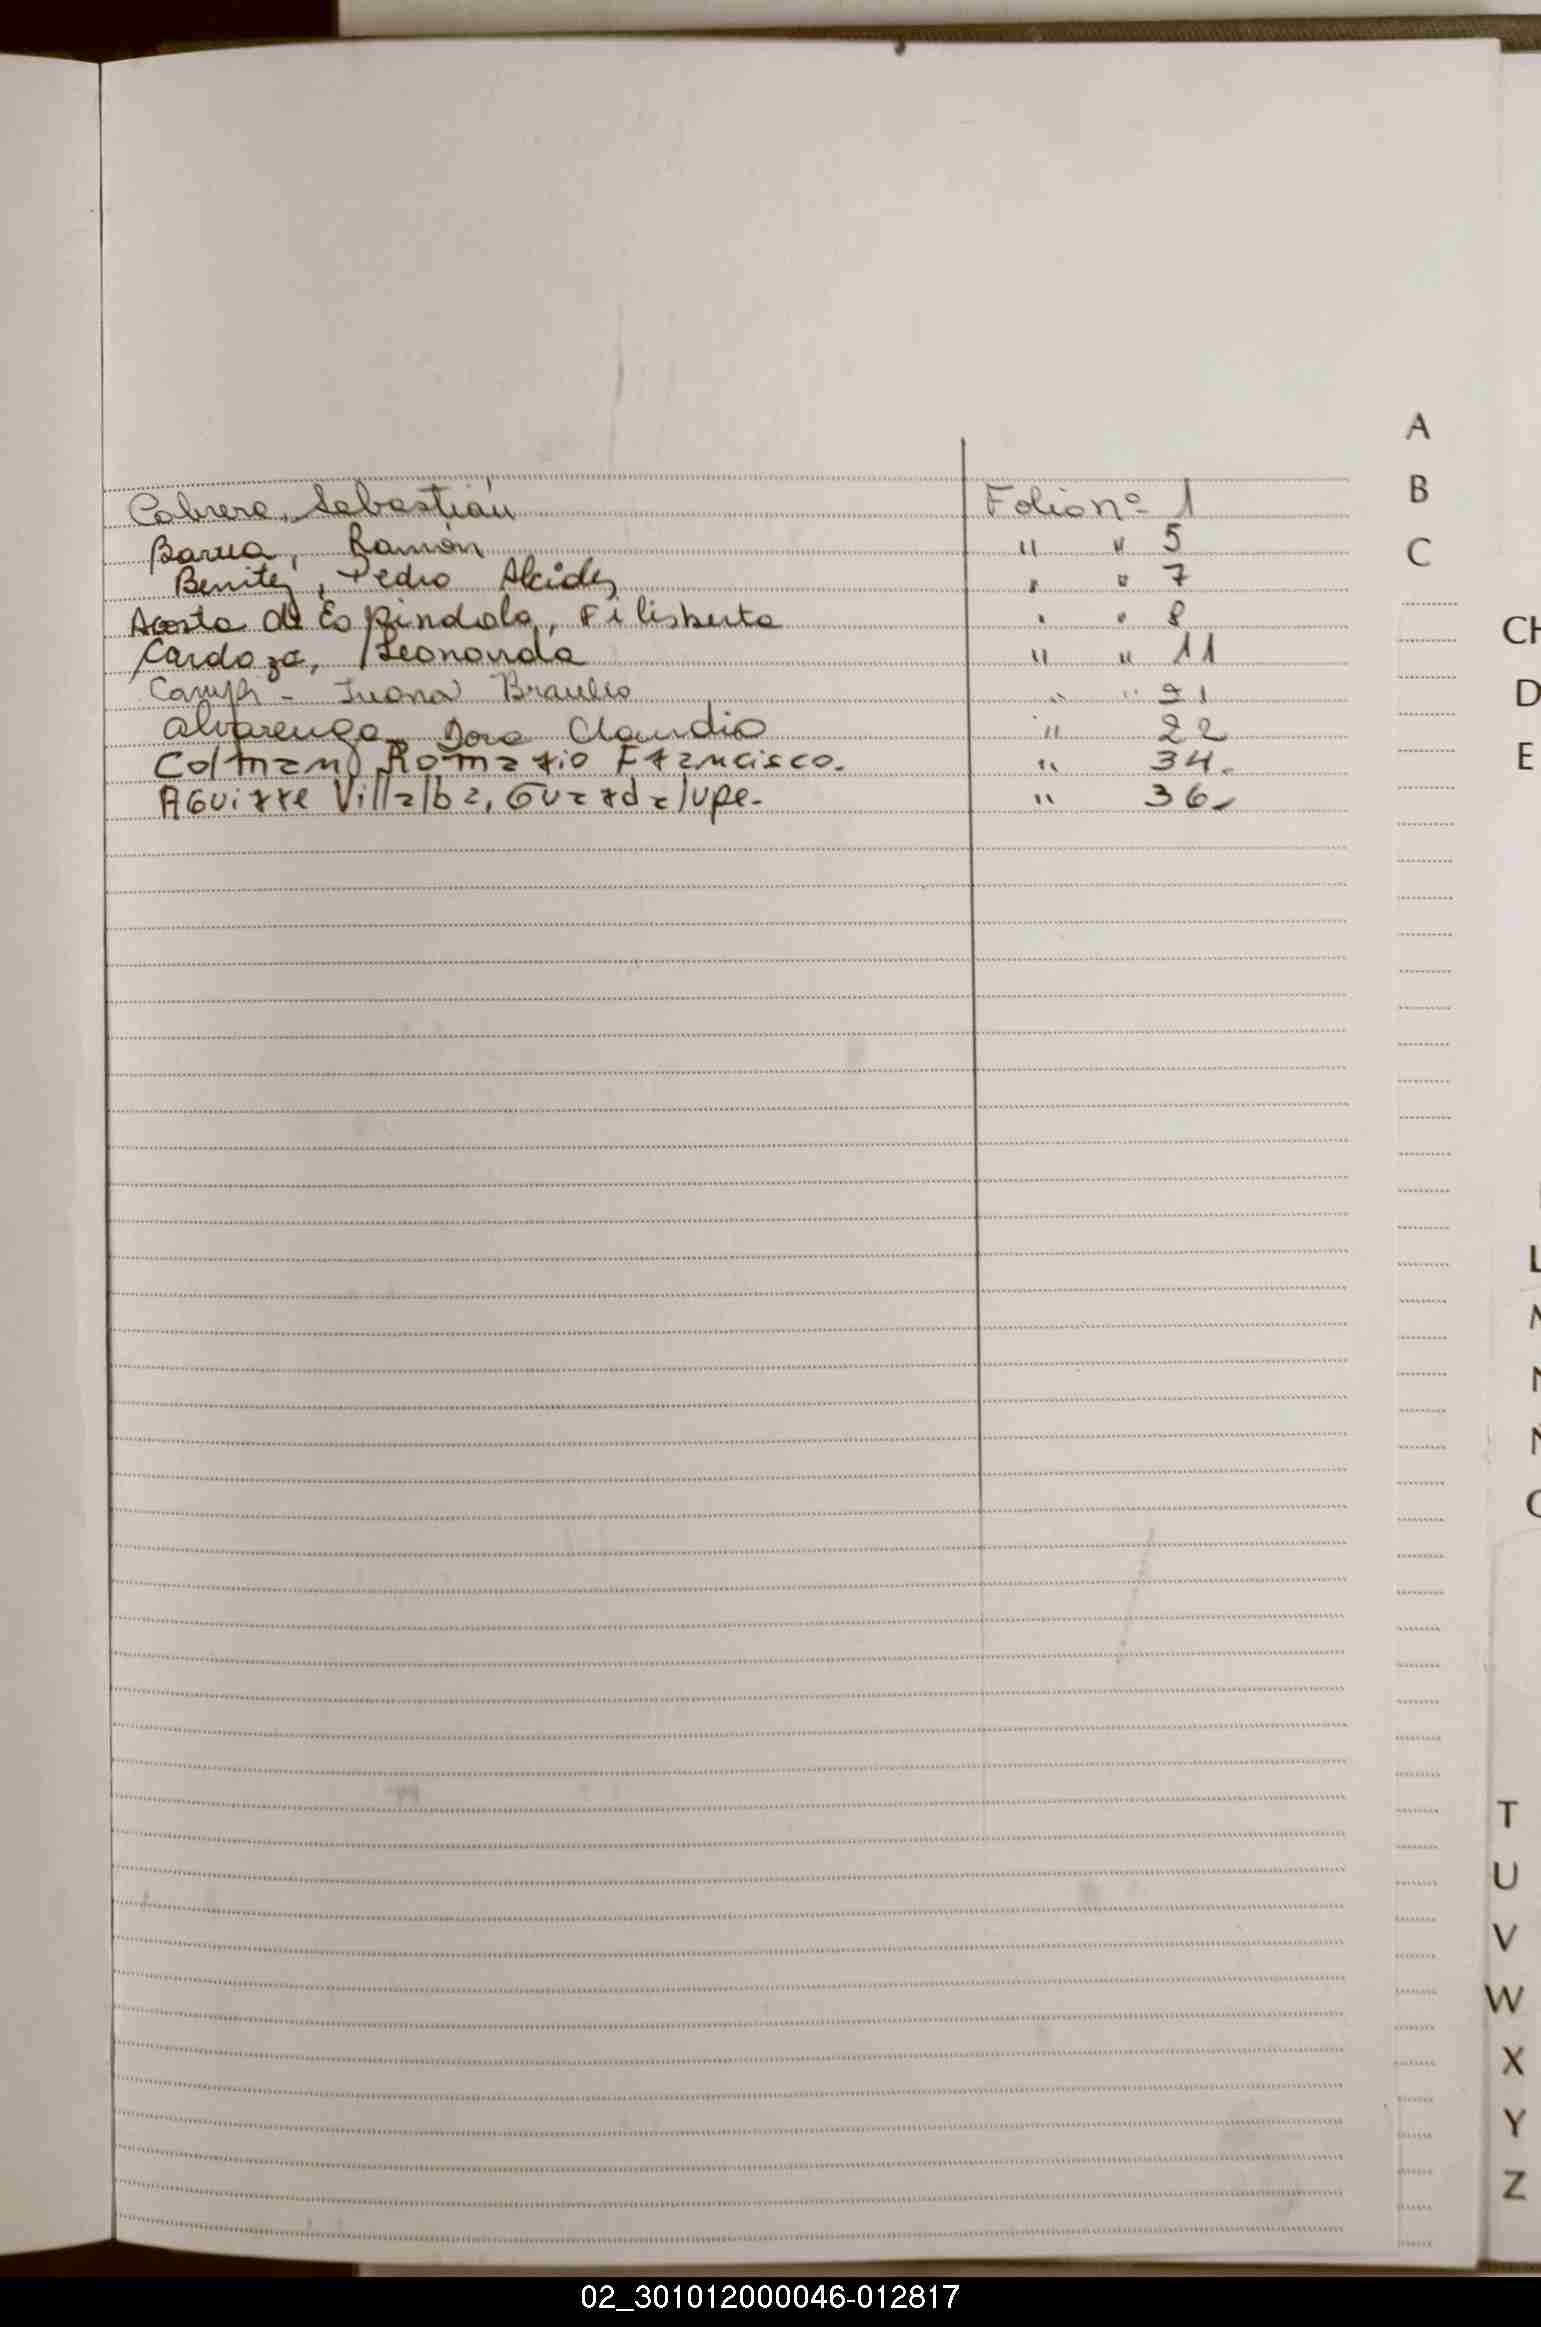 Cabrera, Sebastián Folio nº 1
Barua, Ramón " " 5
Benitez, Pedro Alcides " " 7
Acosta de Espindola, Filisberta " " 8
Cardozo, Leononda " " 11
Juana Braulio " " 21
Alvarenga Dora Claudia " 22
Colman, Romario Francisco. " 34.
AGuirre Villalba, Guardalupe. " 36.
A
B
C
CH
D
E
L
T
U
V
W
X
Y
Z
02_301012000046-012817